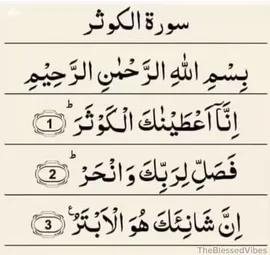 سورة الكوثر
بِسْمِ اللهِ الرَّحْمٰنِ الرَّحِيْمِ
اِنَّاۤ اَعْطَيْنٰكَ الْكَوْثَرَ ؕ 1
فَصَلِّ لِرَبِّكَ وَانْحَرْ ؕ 2
اِنَّ شَانِئَكَ هُوَ الْاَبْتَرُ ۠ 3
TheBlessedVibes